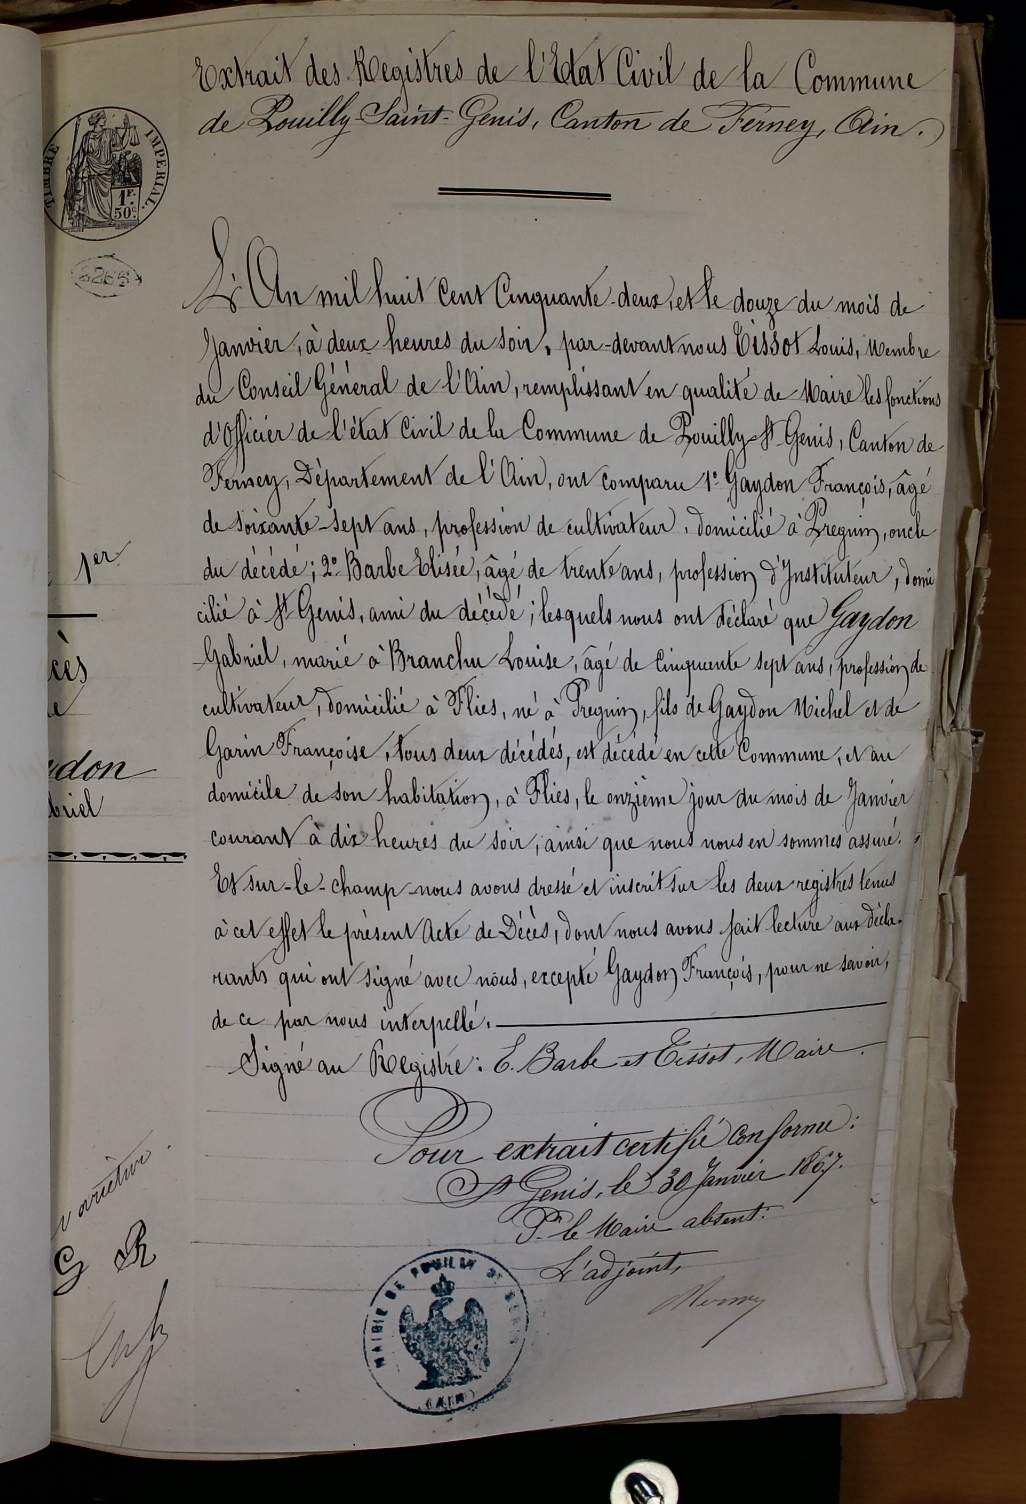 Extrait des Registres de l'Etat Civil de la Commune
de Pouilly-Saint-Genis, Canton de Ferney, Ain.
TIMBRE IMPERIAL.
1F. 50c
L'An mil huit cent cinquante-deux, et le douze du mois de
Janvier, à deux heures du soir, par-devant nous Tissot Louis, Membre
du Conseil Général de l'Ain, remplissant en qualité de Maire les fonctions
d'Officier de l'état Civil de la Commune de Pouilly-St-Genis, Canton de
Ferney, Département de l'Ain, ont comparu 1° Gaydon François, âgé
de soixante-sept ans, profession de cultivateur, domicilié à Pregnin, oncle
du décédé; 2° Barbe Elisée, âgé de trente ans, profession d'Instituteur, domi
cilié à St Genis, ami du décédé; lesquels nous ont déclaré que Gaydon
Gabriel, marié à Branchu Louise, âgé de cinquante sept ans, profession de
cultivateur, domicilié à Flies, né à Pregnin, fils de Gaydon Michel et de
Garin Françoise, tous deux décédés, est décédé en cette Commune, et au
domicile de son habitation, à Flies, le onzième jour du mois de Janvier
courant à dix heures du soir, ainsi que nous nous en sommes assuré.
Et sur-le-champ nous avons dressé et inscrit sur les deux registres tenus
à cet effet le présent Acte de Décès, dont nous avons fait lecture aux décla-
rants qui ont signé avec nous, excepté Gaydon François, pour ne savoir,
de ce par nous interpellé.
Signé au Registre: E. Barbe et Tissot, Maire.
Pour extrait certifié conforme:
St Genis, le 30 Janvier 1867.
Pr le Maire absent:
L'adjoint,
MAIRIE DE POUILLY ST GENIS
(AIN)
1er
cès
e
ydon
briel
varietur.
G R